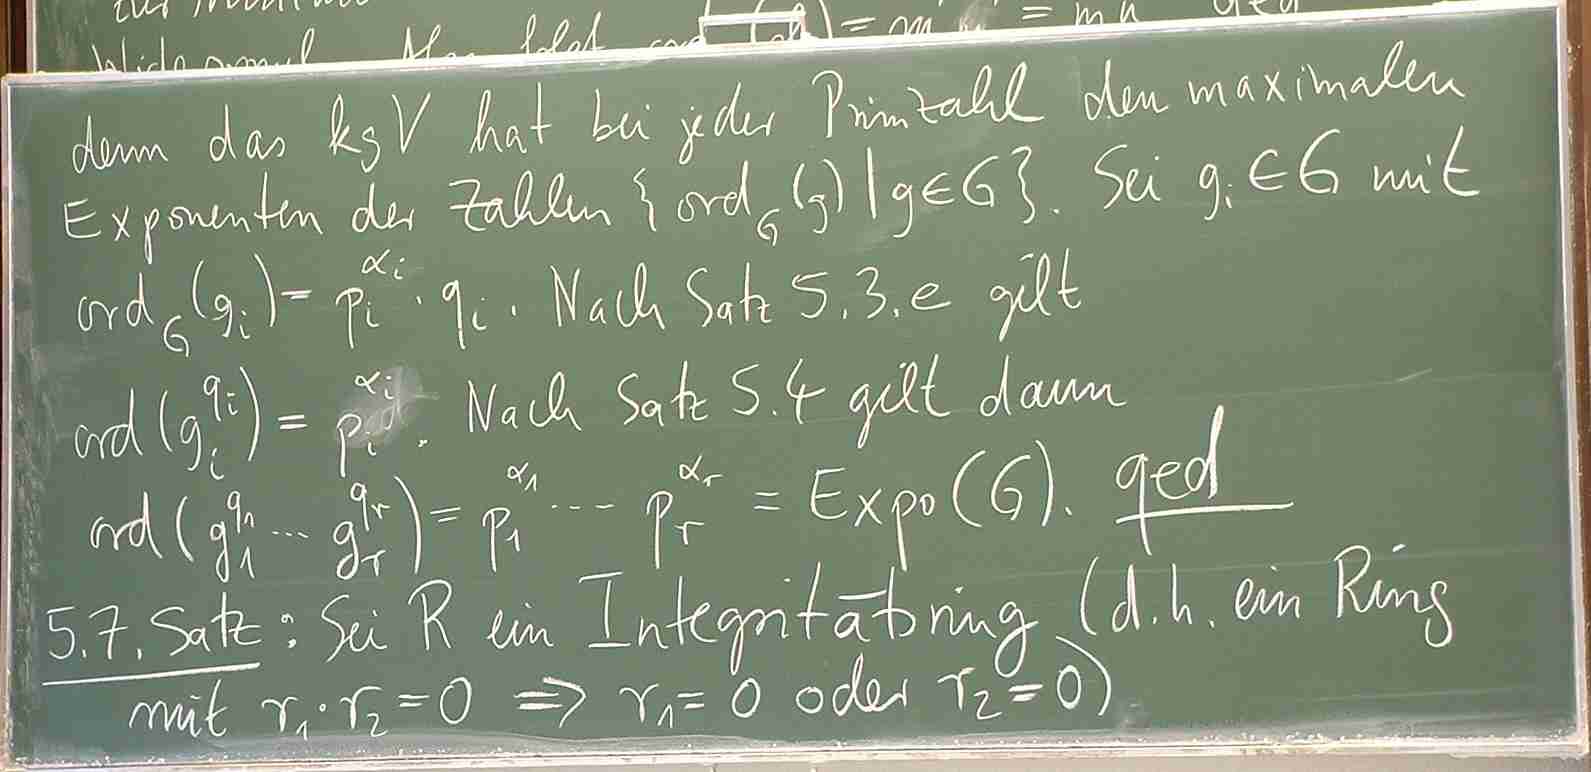 = mn qed
denn das kgV hat bei jeder Primzahl den maximalen
Exponenten der Zahlen {ord_G(g) | g∈G}. Sei g_i ∈ G mit
ord_G(g_i) = p_i^{α_i} · q_i. Nach Satz 5.3.e gilt
ord(g_i^{q_i}) = p_i^{α_i}. Nach Satz 5.4 gilt dann
ord(g_1^{q_1} ... g_r^{q_r}) = p_1^{α_1} ... p_r^{α_r} = Expo(G). qed
5.7. Satz: Sei R ein Integritätsring (d.h. ein Ring
mit r_1 · r_2 = 0 ⇒ r_1 = 0 oder r_2 = 0)